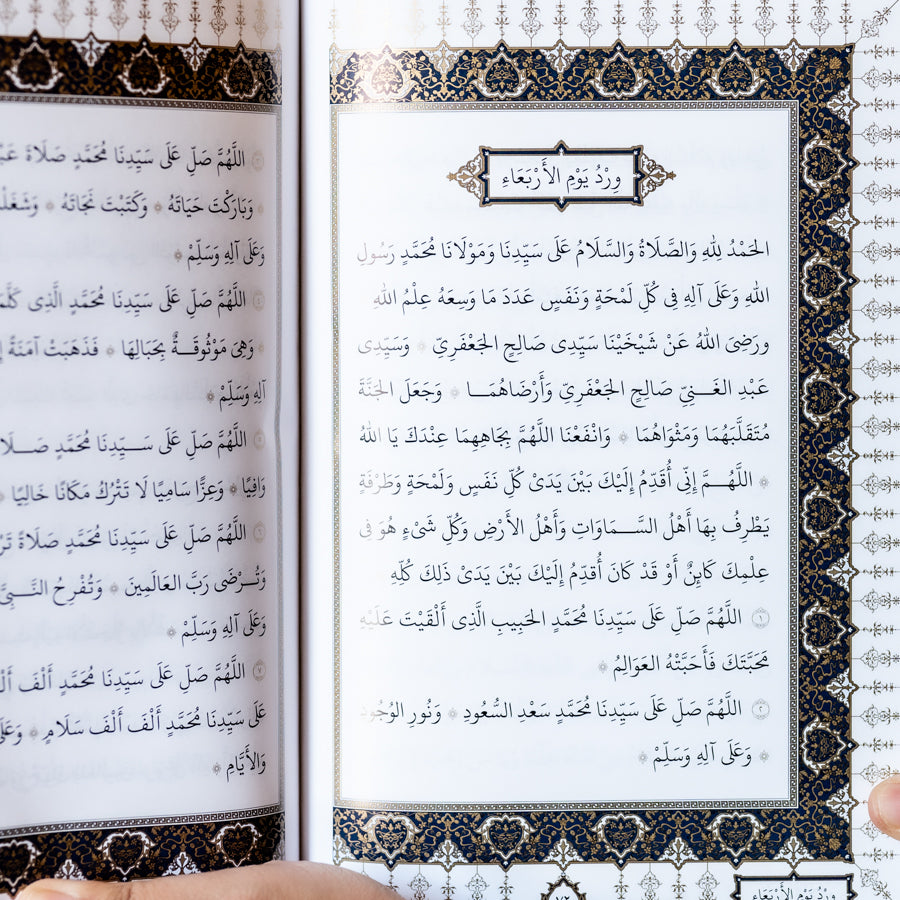 وِرْدُ يَوْمِ الأَرْبَعَاءِ
الحَمْدُ لِلهِ وَالصَّلَاةُ وَالسَّلَامُ عَلَى سَيِّدِنَا وَمَوْلَانَا مُحَمَّدٍ رَسُولِ
اللهِ وَعَلَى آلِهِ فِى كُلِّ لَمْحَةٍ وَنَفَسٍ عَدَدَ مَا وَسِعَهُ عِلْمُ اللهِ
ورَضِىَ اللهُ عَنْ شَيْخَيْنَا سَيِّدِى صَالِحٍ الجَعْفَرِيِّ ۞ وَسَيِّدِى
عَبْدِ الغَـنِيِّ صَالِحٍ الجَعْفَرِيِّ وَأَرْضَاهُمَـا ۞ وَجَعَلَ الجَنَّةَ
مُتَقَلَّبَهُمَا وَمَثْوَاهُمَا ۞ وَانْفَعْنَا اللَّهُمَّ بِجَاهِهِمَا عِنْدَكَ يَا اللهُ
۞ اللَّهُـمَّ إِنِّى أُقَدِّمُ إِلَيْكَ بَيْنَ يَدَىْ كُلِّ نَفَسٍ وَلَمْحَةٍ وَطَرْفَةٍ
يَطْرِفُ بِهَا أَهْلُ السَّـمَاوَاتِ وَأَهْلُ الأَرْضِ وَكُلِّ شَىْءٍ هُوَ فِى
عِلْمِكَ كَائِنٌ أَوْ قَدْ كَانَ أُقَدِّمُ إِلَيْكَ بَيْنَ يَدَىْ ذَلِكَ كُلِّهِ
١ اللَّهُمَّ صَلِّ عَلَى سَيِّدِنَا مُحَمَّدٍ الحَبِيبِ الَّذِى أَلْقَيْتَ عَلَيْهِ
مَحَبَّتَكَ فَأَحَبَّتْهُ العَوَالِمُ ۞
٢ اللَّهُمَّ صَلِّ عَلَى سَيِّدِنَا مُحَمَّدٍ سَعْدِ السُّعُودِ ۞ وَنُورِ الوُجُودِ
۞ وَعَلَى آلِهِ وَسَلِّمْ ۞
وِرْدُ يَوْمِ الأَرْبَعَاءِ
٣ اللَّهُمَّ صَلِّ عَلَى سَيِّدِنَا مُحَمَّدٍ صَلَاةً
۞ وَبَارَكْتَ حَيَاتَهُ ۞ وَكَتَبْتَ نَجَاتَهُ ۞
وَعَلَى آلِهِ وَسَلِّمْ ۞
٤ اللَّهُمَّ صَلِّ عَلَى سَيِّدِنَا مُحَمَّدٍ الَّذِى
۞ وَهِىَ مَوْثُوقَـةٌ بِحِبَالِهَا ۞ فَذَهَبَتْ آمَنَةً
آلِهِ وَسَلِّمْ ۞
اللَّهُمَّ صَلِّ عَلَى سَـيِّدِنَا مُحَمَّدٍ
وَافِيًا ۞ وَعِزًّا سَامِيًا لَا تَتْرُكُ مَكَانًا خَالِيًا ۞
٦ اللَّهُمَّ صَلِّ عَلَى سَيِّدِنَا مُحَمَّدٍ صَلَاةً
وَتُـرْضَى رَبَّ العَالَمِينَ ۞ وَتُفْرِحُ
وَعَلَى آلِهِ وَسَلِّمْ ۞
٧ اللَّهُمَّ صَلِّ عَلَى سَيِّدِنَا مُحَمَّدٍ أَلْفَ
عَلَى سَيِّدِنَا مُحَمَّدٍ أَلْفَ أَلْفَ سَلَامٍ ۞
وَالأَيَّامِ ۞